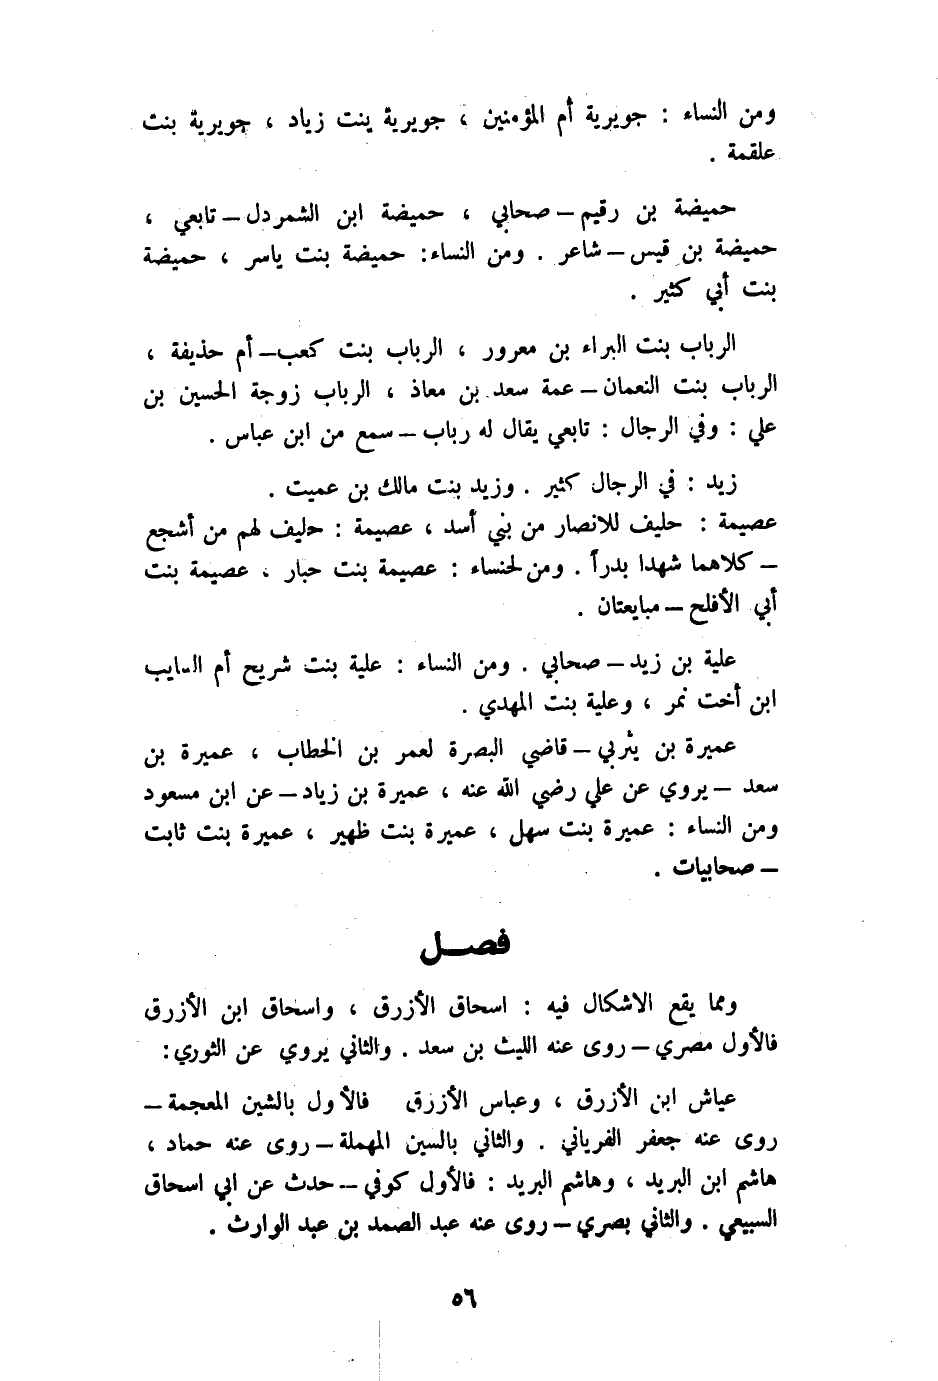 ومن النساء : جويرية أم المؤمنين ، جويرية ينت زياد ، جويرية بنت
علقمة .
حميضة بن رقيم – صحابي ، حميضة ابن الشمردل – تابعي ،
حميضة بن قيس – شاعر . ومن النساء : حميضة بنت ياسر ، حميضة
بنت أبي كثير .
الرباب بنت البراء بن معرور ، الرباب بنت كعب – أم حذيفة ،
الرباب بنت النعمان – عمة سعد بن معاذ ، الرباب زوجة الحسين بن
علي : وفي الرجال : تابعي يقال له رباب – سمع من ابن عباس .
زيد : في الرجال كثير . وزيد بنت مالك بن عميت .
عصيمة : حليف للانصار من بني أسد ، عصيمة : حليف لهم من أشجع
– كلاهما شهدا بدراً . ومن لحنساء : عصيمة بنت حبار ، عصيمة بنت
أبي الأفلح – مبايعتان .
علية بن زيد – صحابي . ومن النساء : علية بنت شريح أم السايب
ابن أخت نمر ، وعلية بنت المهدي .
عميرة بن يثربي – قاضي البصرة لعمر بن الخطاب ، عميرة بن
سعد – يروي عن علي رضي الله عنه ، عميرة بن زياد – عن ابن مسعود
ومن النساء : عميرة بنت سهل ، عميرة بنت ظهير ، عميرة بنت ثابت
– صحابيات .
فصل
ومما يقع الاشكال فيه : اسحاق الأزرق ، واسحاق ابن الأزرق
فالأول مصري – روى عنه الليث بن سعد . والثاني يروي عن الثوري :
عياش ابن الأزرق ، وعباس الأزرق فالأول بالشين المعجمة –
روى عنه جعفر الفرياني . والثاني بالسين المهملة – روى عنه حماد ،
هاشم ابن البريد ، وهاشم البريد : فالأول كوفي – حدث عن ابي اسحاق
السبيعي . والثاني بصري – روى عنه عبد الصمد بن عبد الوارث .
٥٦